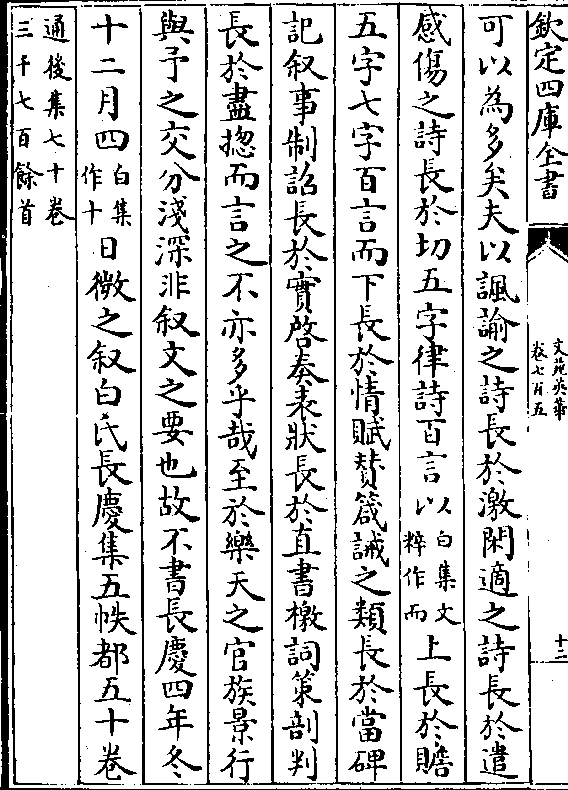 欽定四庫全書
文苑英華
卷七百五
十二
可以為多矣夫以諷諭之詩長於激閑適之詩長於遣
感傷之詩長於切五字律詩百言以白集文粹作而上長於贍
五字七字百言而下長於情賦賛箴誡之類長於當碑
記叙事制詔長於實啓奏表狀長於直書檄詞策剖判
長於盡揔而言之不亦多乎哉至於樂天之官族景行
與予之交分淺深非叙文之要也故不書長慶四年冬
十二月四白集作十日微之叙白氏長慶集五帙都五十卷
通後集七十卷
三千七百餘首